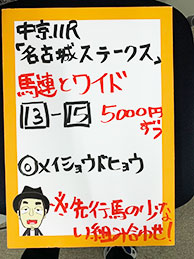 中京11R
「名古屋城ステークス」
馬連とワイド
13-15 5000円
ずつ
◎メイショウドヒョウ
※先行馬の少な
い組み合わせ!